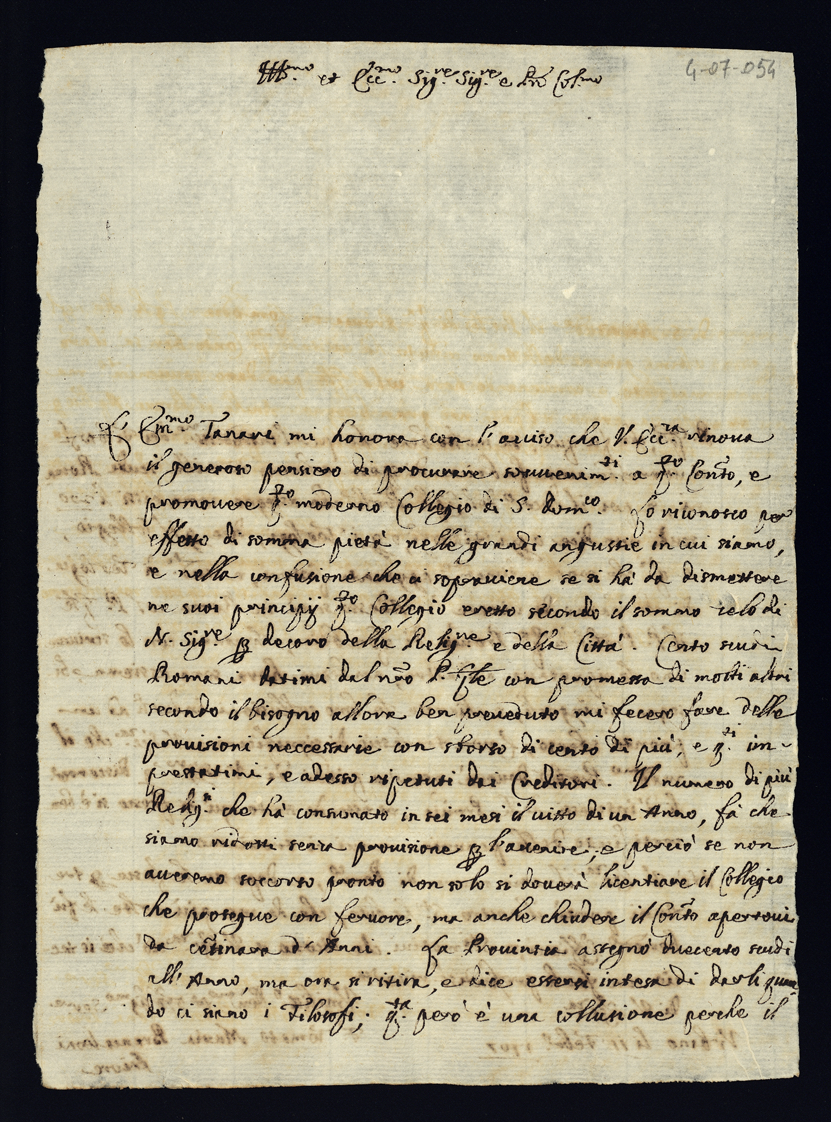 4-07-054
Ill.mo et Ecc.mo Sig.re Sig.re e P̃ro Col.mo
L' Em.mo Tanari mi honora con l'auuiso che V. Ecc.za rinoua
il generoso pensiero di procurare souuenim.ti a q.to Con̄to, e
promouere q.to moderno Collegio di S. Dom.co. Lo riconosco per
effetto di somma pietà nelle grandi angustie in cui siamo,
e nella confusione che ci soprauiene se si hà da dismettere
ne suoi principij q.to Collegio eretto secondo il sommo zelo di
N. Sig.re ꝑ decoro della Relig.ne e della Città. Cento scudi
Romani datimi dal nr̃o P. G̃le con promessa di molti altri
secondo il bisogno allora ben preueduto mi fecero fare delle
prouisioni neccessarie con sborso di cento di più, e q.ti im-
prestatimi, e adesso ripetuti dai Creditori. Il numero di più
Relig.i che hà consumato in sei mesi il uitto di un Anno, fà che
siamo ridotti senza prouisione ꝑ l'auenire, e perciò se non
aueremo soccorso pronto non solo si douerà licentiare il Collegio
che prosegue con feruore, ma anche chiudere il Con̄to apertoui
da centinara d'Anni. La Prouintia assegnò duecento scudi
all'Anno, ma ora si ritira, e dice essersi intesa di darli quan
do ci siano i Filosofi; q.ta però è una collusione perche il